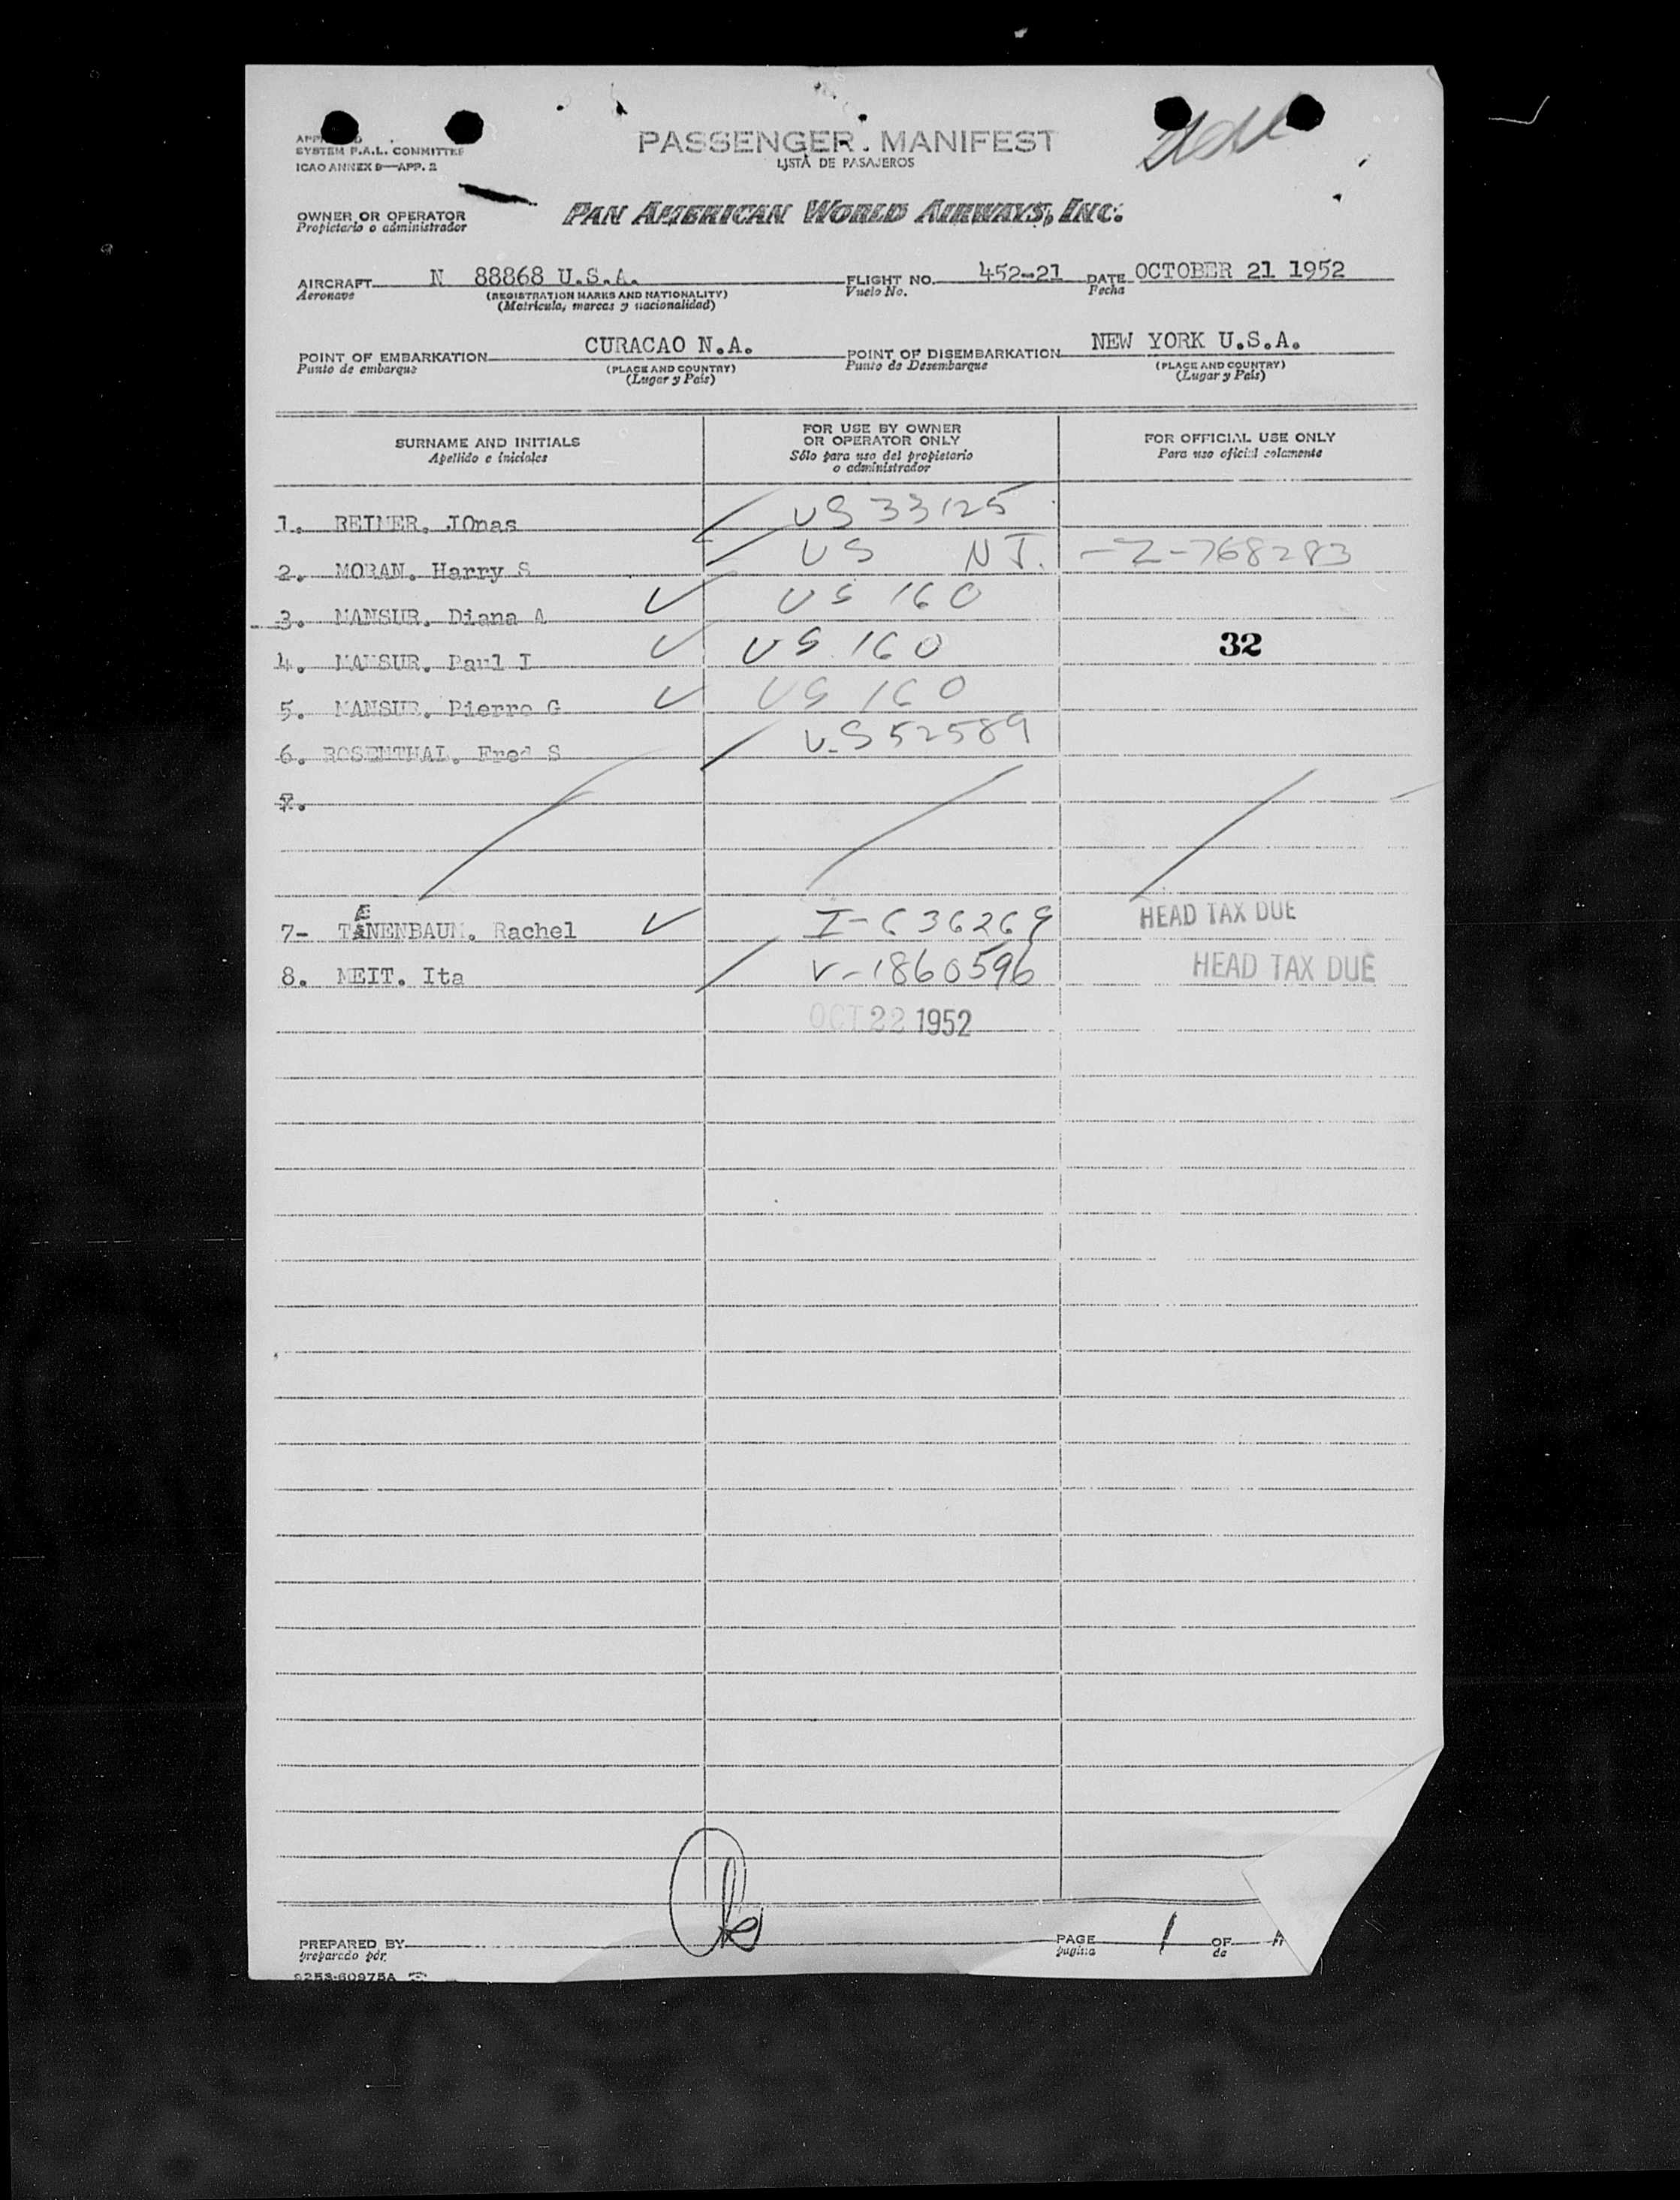 PASSENGER MANIFEST
LISTA DE PASAJEROS
SYSTEM P.A.L. COMMITTEE
ICAO ANNEX 9—APP. 2
OWNER OR OPERATOR PAN AMERICAN WORLD AIRWAYS, INC.
Propietario o administrador
AIRCRAFT N 88868 U.S.A. FLIGHT NO. 452-21 DATE OCTOBER 21 1952
Aeronave (REGISTRATION MARKS AND NATIONALITY) Vuelo No. Fecha
(Matricula, marcas y nacionalidad)
POINT OF EMBARKATION CURACAO N.A. POINT OF DISEMBARKATION NEW YORK U.S.A.
Punto de embarque (PLACE AND COUNTRY) Punto de Desembarque (PLACE AND COUNTRY)
(Lugar y País) (Lugar y País)
SURNAME AND INITIALS FOR USE BY OWNER OR OPERATOR ONLY FOR OFFICIAL USE ONLY
Apellido e iniciales Sólo para uso del propietario o administrador Para uso oficial solamente
1. REINER, JOnas US 33125
2. MORAN, Harry S US NJ. -Z-768283
3. MANSUR, Diana A US 160
4. MANSUR, Paul I US 160 32
5. MANSUR, Pierre G US 160
6. ROSENTHAL, Fred S US 52589
7.
7- TENENBAUM. Rachel I-636269 HEAD TAX DUE
8. MEIT. Ita V-1860596 HEAD TAX DUE
OCT 22 1952
PREPARED BY PAGE 1 OF
preparado por pagina de
9253-60975A